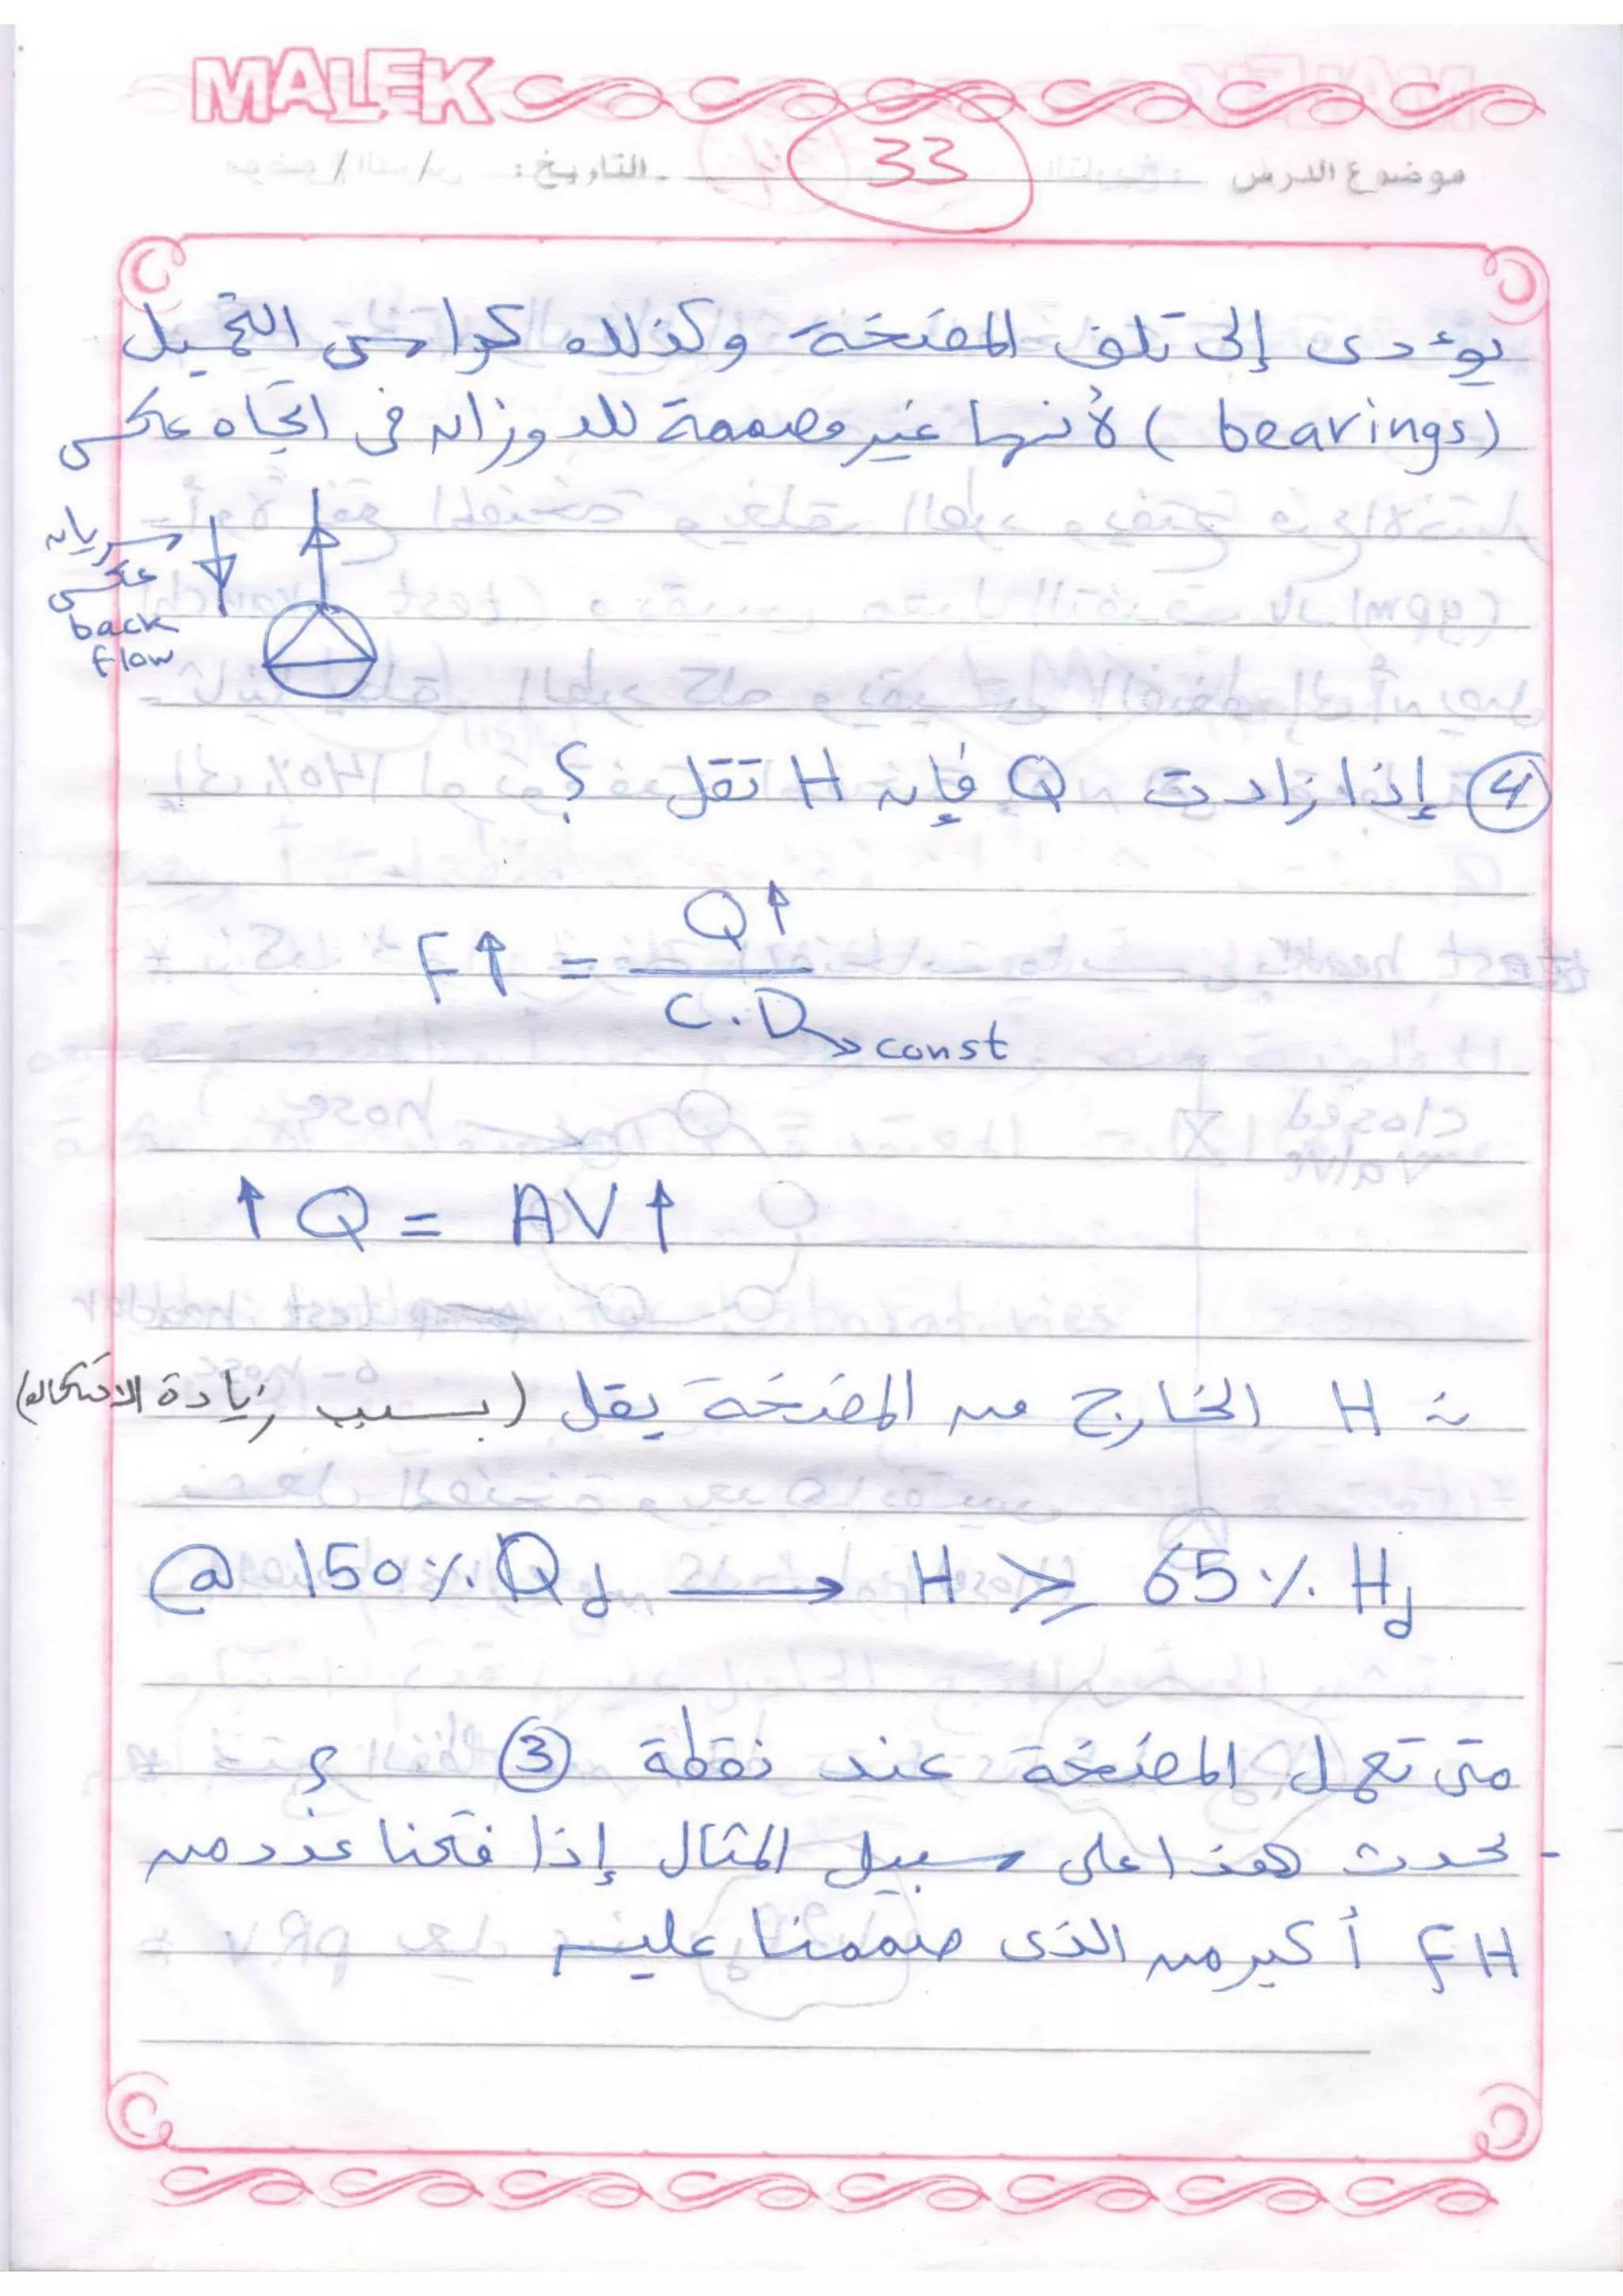 MALEK
موضوع الدرس
33
التاريخ: / /
يؤدى إلى تلف المضخة وكذلك كراسى التحميل
(bearings) لأنها غير مصممة للدوران فى اتجاه عكسى
سريان
عكسى
back
flow
④ إذا زادت Q فإن H تقل ؟
F↑ = Q↑ / C.D → const
↑Q = AV↑
∴ H الخارج من المضخة يقل (بسبب زيادة الاحتكاك)
@ 150% Qd → H ≥ 65% Hd
متى تعمل المضخة عند نقطة ③ ؟
- يحدث هذا على سبيل المثال إذا فتحنا عدد من
FH أكبر من الذى صممنا عليه